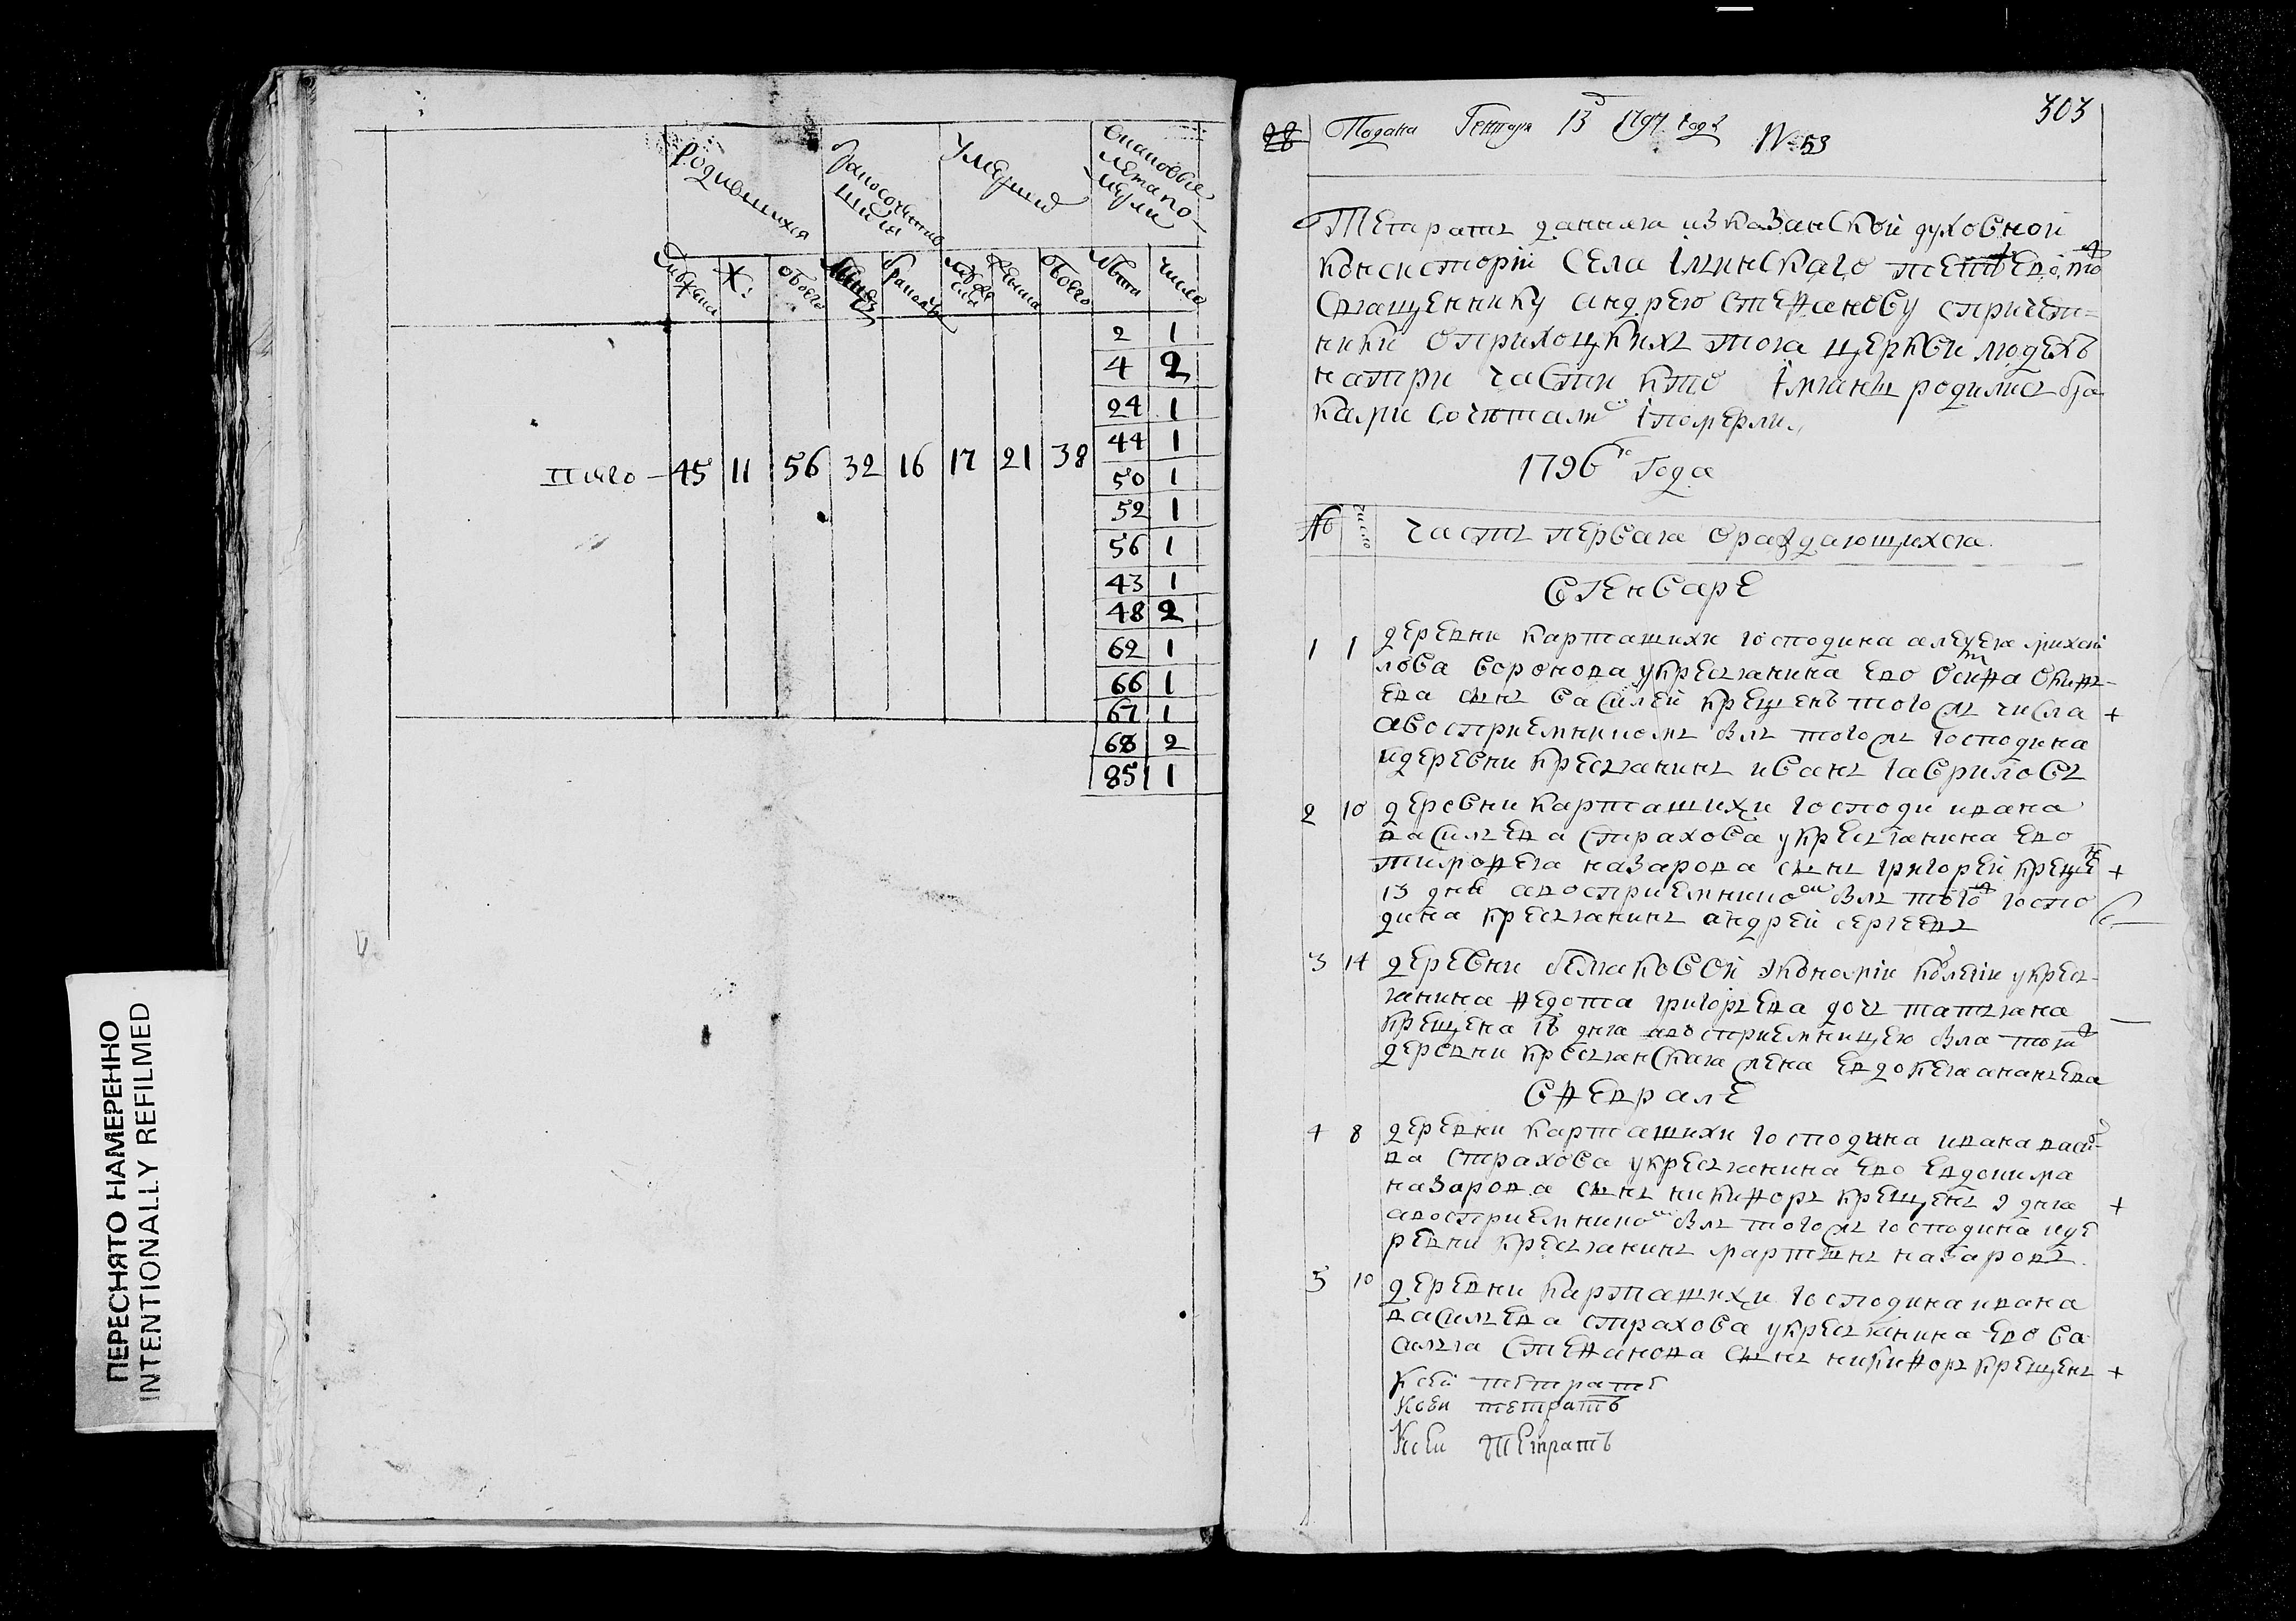 Родившихся
умерших
мужеска
Ж:
обоего
женска
обоего
лета
число
2 1
4 2
24 1
44 1
Итого — 45 11 56 32 16 17 21 38
50 1
52 1
56 1
43 1
48 2
62 1
66 1
67 1
68 2
85 1
ПЕРЕСНЯТО НАМЕРЕННО
INTENTIONALLY REFILMED
303
28 Подана Генваря 13 1797 года № 53
Тетрать данная из казанской духовной
консистории села
священнику андрею стефанову спричет-
ники оприхоцких тоя церкви людех
натри части кто имяны родились бра
ками сочетались и померли
1796го Года
№ число часть первая ораждающихся
вГенваре
1 1 деревни карташихи господина алеѯея михаи
лова воронова укрестьянина ево
ева сынъ василей крещенъ тогож числа +
авосприемникомъ былъ тогожъ господина
идеревни крестьянинъ иванъ гавриловъ
2 10 деревни карташихи господи ивана
васильева страхова укрестьянина ево
тимофея назарова сынъ григорей крещенъ +
13 дня авосприемникомъ былъ тогож госпо
дина крестьянинъ андрей сергеевъ
3 14 деревни економии колегии укресть-
янина федота григорьева дочь татьяна
крещена дня авосприемницею была тояж —
деревни крестьянская жена евдокея ананьева
вфеврале
4 8 деревни карташихи господина ивана васи-
ва страхова укрестьянина ево евдокима
назарова сынъ никифоръ крещенъ 9 дня +
авосприемникомъ былъ тогожъ господина иде
ревни крестьянинъ мартынъ назаровъ
5 10 деревни карташихи господина ивана
васильева страхова укрестьянина ево ва
силья стефанова сынъ никифоръ крещенъ +
Ксей тетрате
Ксеи тетрать
Ксеи тетрать